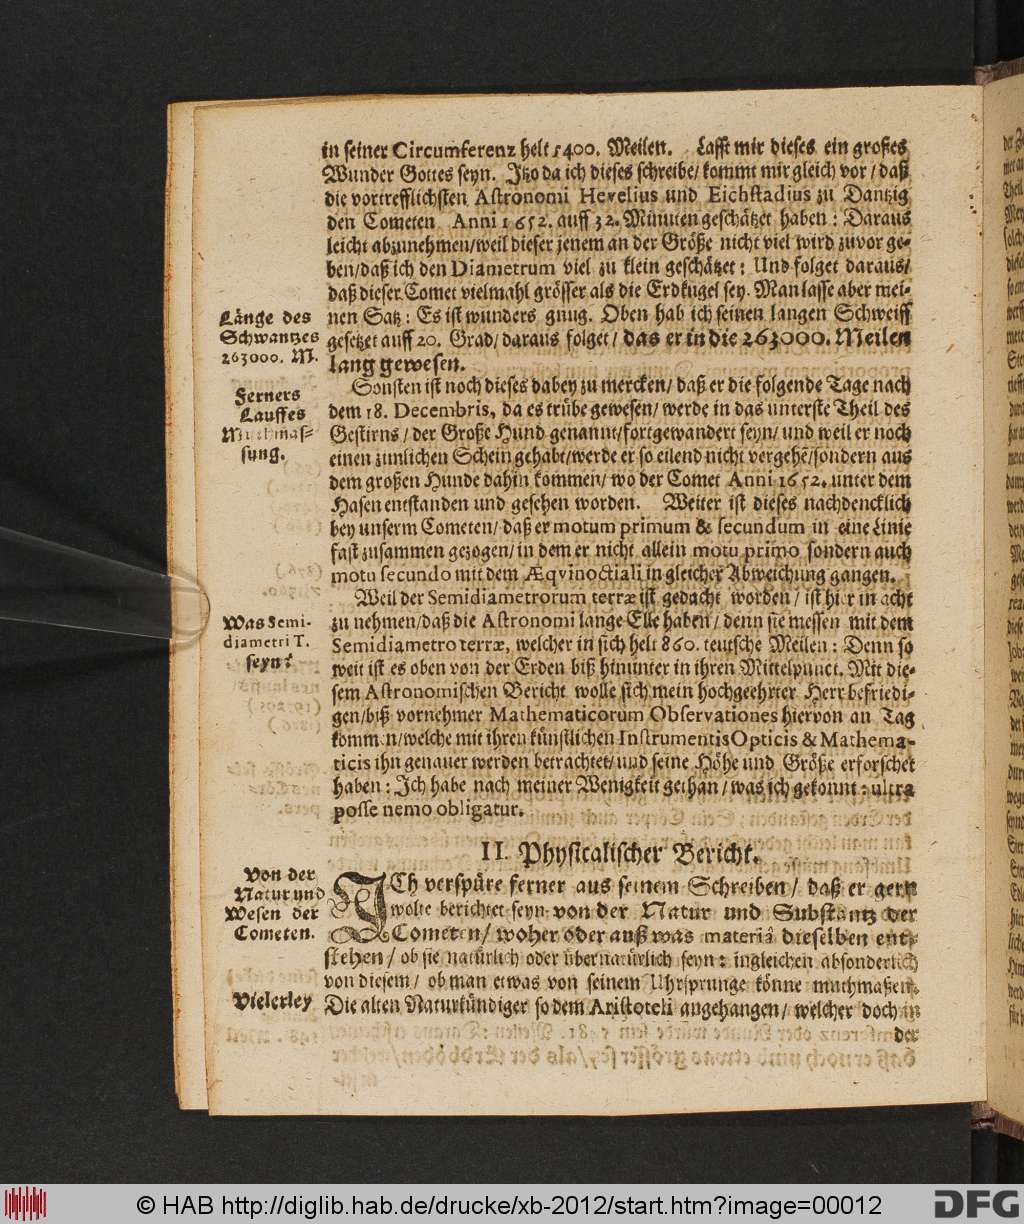 in seiner Circumferenz helt 5400. Meilen. Lasst mir dieses ein großes
Wunder Gottes seyn. Itzo da ich dieses schreibe/ kommt mir gleich vor/ daß
die vortrefflichsten Astronomi Hevelius und Eichstadius zu Dantzig
den Cometen Anni 1652. auff 32. Minuten geschätzet haben: Daraus
leicht abzunehmen/weil dieser jenem an der Größe nicht viel wird zuvor ge-
ben/daß ich den Diametrum viel zu klein geschätzet: Und folget daraus/
daß dieser Comet vielmahl grösser als die Erdkugel sey. Man lasse aber mei-
nen Satz: Es ist wunders gnug. Oben hab ich seinen langen Schweiff
gesetzet auff 20. Grad/ daraus folget/ das er in die 263000. Meilen
lang gewesen.
Länge des
Schwantzes
263000. M.
Sonsten ist noch dieses dabey zu mercken/ daß er die folgende Tage nach
dem 18. Decembris, da es trübe gewesen/ werde in das unterste Theil des
Gestirns/ der Große Hund genannt/fortgewandert seyn/ und weil er noch
einen zimlichen Schein gehabt/werde er so eilend nicht vergehē/sondern aus
dem großen Hunde dahin kommen/ wo der Comet Anni 1652. unter dem
Hasen entstanden und gesehen worden. Weiter ist dieses nachdencklich
bey unserm Cometen/ daß er motum primum & secundum in eine Linie
fast zusammen gezogen/ in dem er nicht allein motu primo sondern auch
motu secundo mit dem Æqvinoctiali in gleicher Abweichung gangen.
Ferners
Lauffes
Muthmas-
sung.
Weil der Semidiametrorum terræ ist gedacht worden/ ist hier in acht
zu nehmen/daß die Astronomi lange Elle haben/ denn sie messen mit dem
Semidiametro terræ, welcher in sich helt 860. teutsche Meilen: Denn so
weit ist es oben von der Erden biß hinunter in ihren Mittelpunct. Mit die-
sem Astronomischen Bericht wolle sich mein hochgeehrter Herr befriedi-
gen/biß vornehmer Mathematicorum Observationes hiervon an Tag
kommen/welche mit ihren künstlichen Instrumentis Opticis & Mathema-
ticis ihn genauer werden betrachtet/ und seine Höhe und Größe erforschet
haben: Ich habe nach meiner Wenigkeit gethan/ was ich gekonnt: ultra
posse nemo obligatur.
Was Semi-
diametri T.
seyn?
II. Physicalischer Bericht.
ICh verspüre ferner aus seinem Schreiben/ daß er gern
wolte berichtet seyn von der Natur und Substantz der
Cometen/ woher oder auß was materiâ dieselben ent-
stehen/ ob sie natürlich oder übernatürlich seyn: ingleichen absonderlich
von diesem/ ob man etwas von seinem Uhrsprunge könne muthmaßen.
Die alten Naturkündiger so dem Aristoteli angehangen/ welcher doch in
der
Von der
Natur und
Wesen der
Cometen.
Vielerley
© HAB http://diglib.hab.de/drucke/xb-2012/start.htm?image=00012
DFG